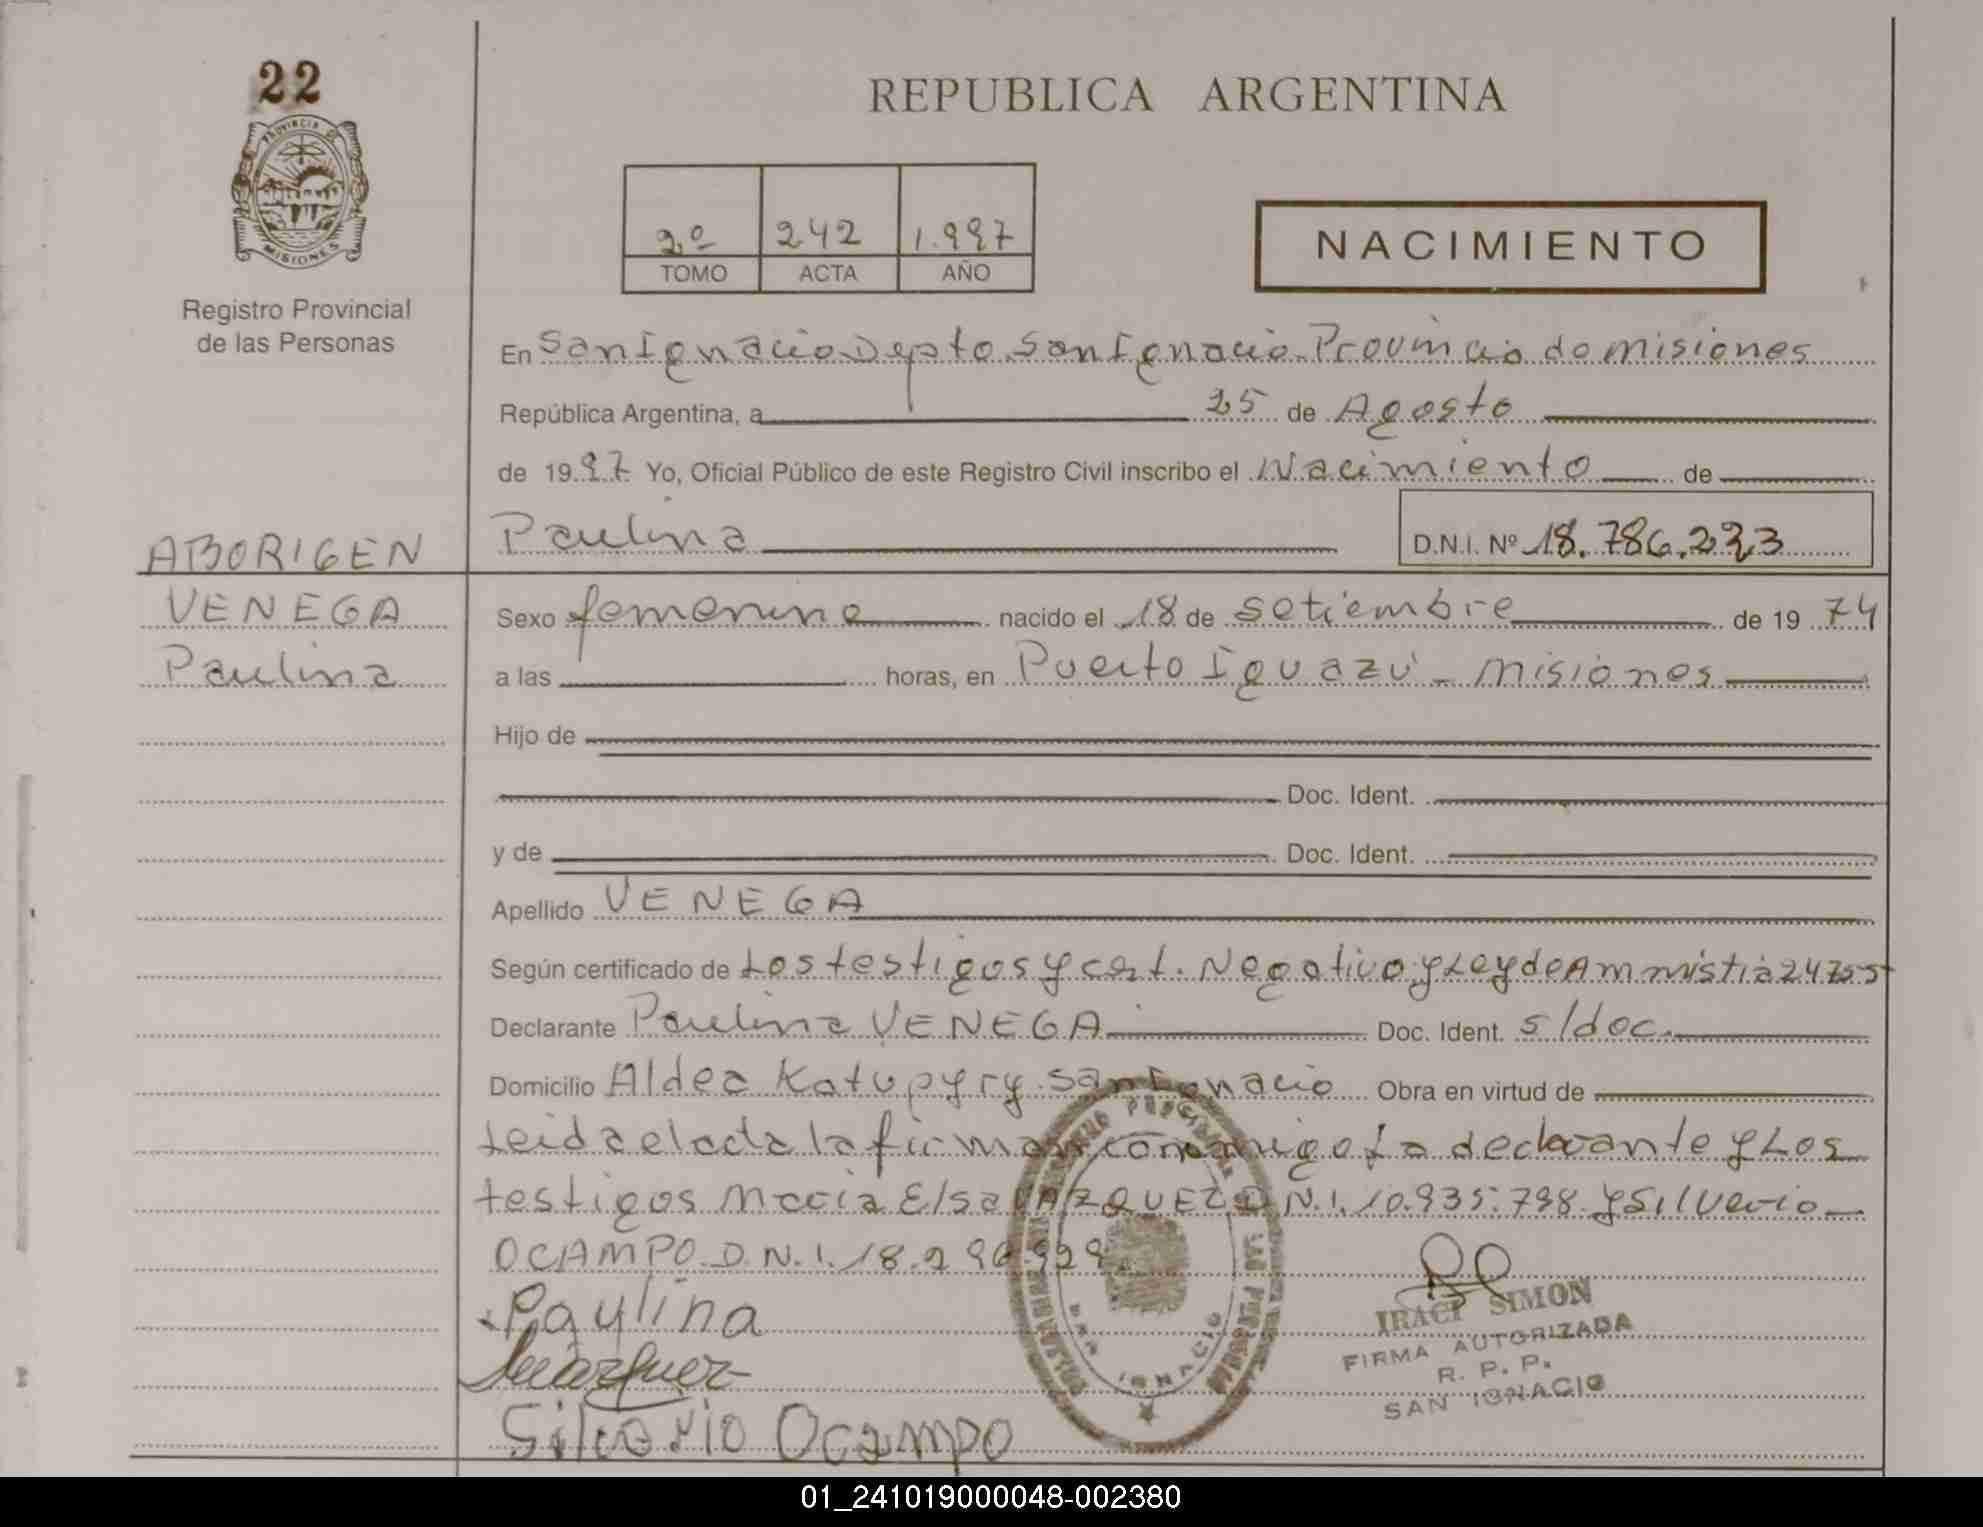 22
REPUBLICA ARGENTINA
PROVINCIA DE
MISIONES
Registro Provincial
de las Personas
2º 242 1.997
TOMO ACTA AÑO
NACIMIENTO
En San Ignacio Depto San Ignacio Provincia de Misiones
República Argentina, a 25 de Agosto
de 1997 Yo, Oficial Público de este Registro Civil inscribo el Nacimiento de
Paulina D.N.I. Nº 18.786.223
ABORIGEN
VENEGA
Paulina
Sexo femenino nacido el 18 de Setiembre de 1974
a las horas, en Puerto Iguazú - Misiones
Hijo de
Doc. Ident.
y de Doc. Ident.
Apellido VENEGA
Según certificado de Los testigos y cert. Negativo y Ley de Ammistia 24755
Declarante Paulina VENEGA Doc. Ident. s/doc.
Domicilio Aldea Katupyry San Ignacio Obra en virtud de
Leida el acta la firman conmigo La declarante y Los
testigos Maria Elsa VAZQUEZ D.N.I. 10.935.798 y Silverio
OCAMPO D.N.I. 18.296.929
Paulina
MEVazquez
Silverio Ocampo
SAN IGNACIO
IRACI SIMON
FIRMA AUTORIZADA
R. P. P.
SAN IGNACIO
01_241019000048-002380